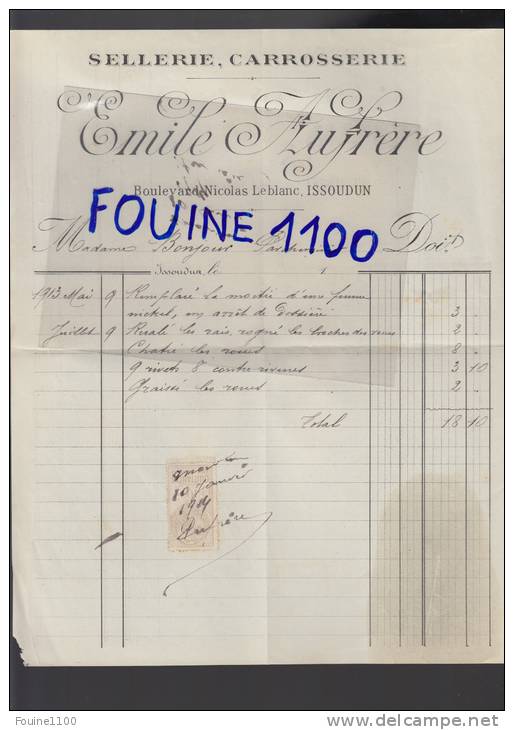 SELLERIE, CARROSSERIE
Emile Aufrère
Boulevard Nicolas Leblanc, ISSOUDUN
FOUINE 1100
Madame Bonjour Doit
Issoudun, le 1
1913 Mai 9 Remplacé la moitié d'une
nickel, en arrêt de 3 "
Juillet 9 les rais, rogné les broches des roues 2 "
Chatré les roues 8 "
9 rivets 8 contre rivures 3 10
Graissé les roues 2 "
Total 18 10
10
1914
Aufrère
Fouine1100
http://www.delcampe.net